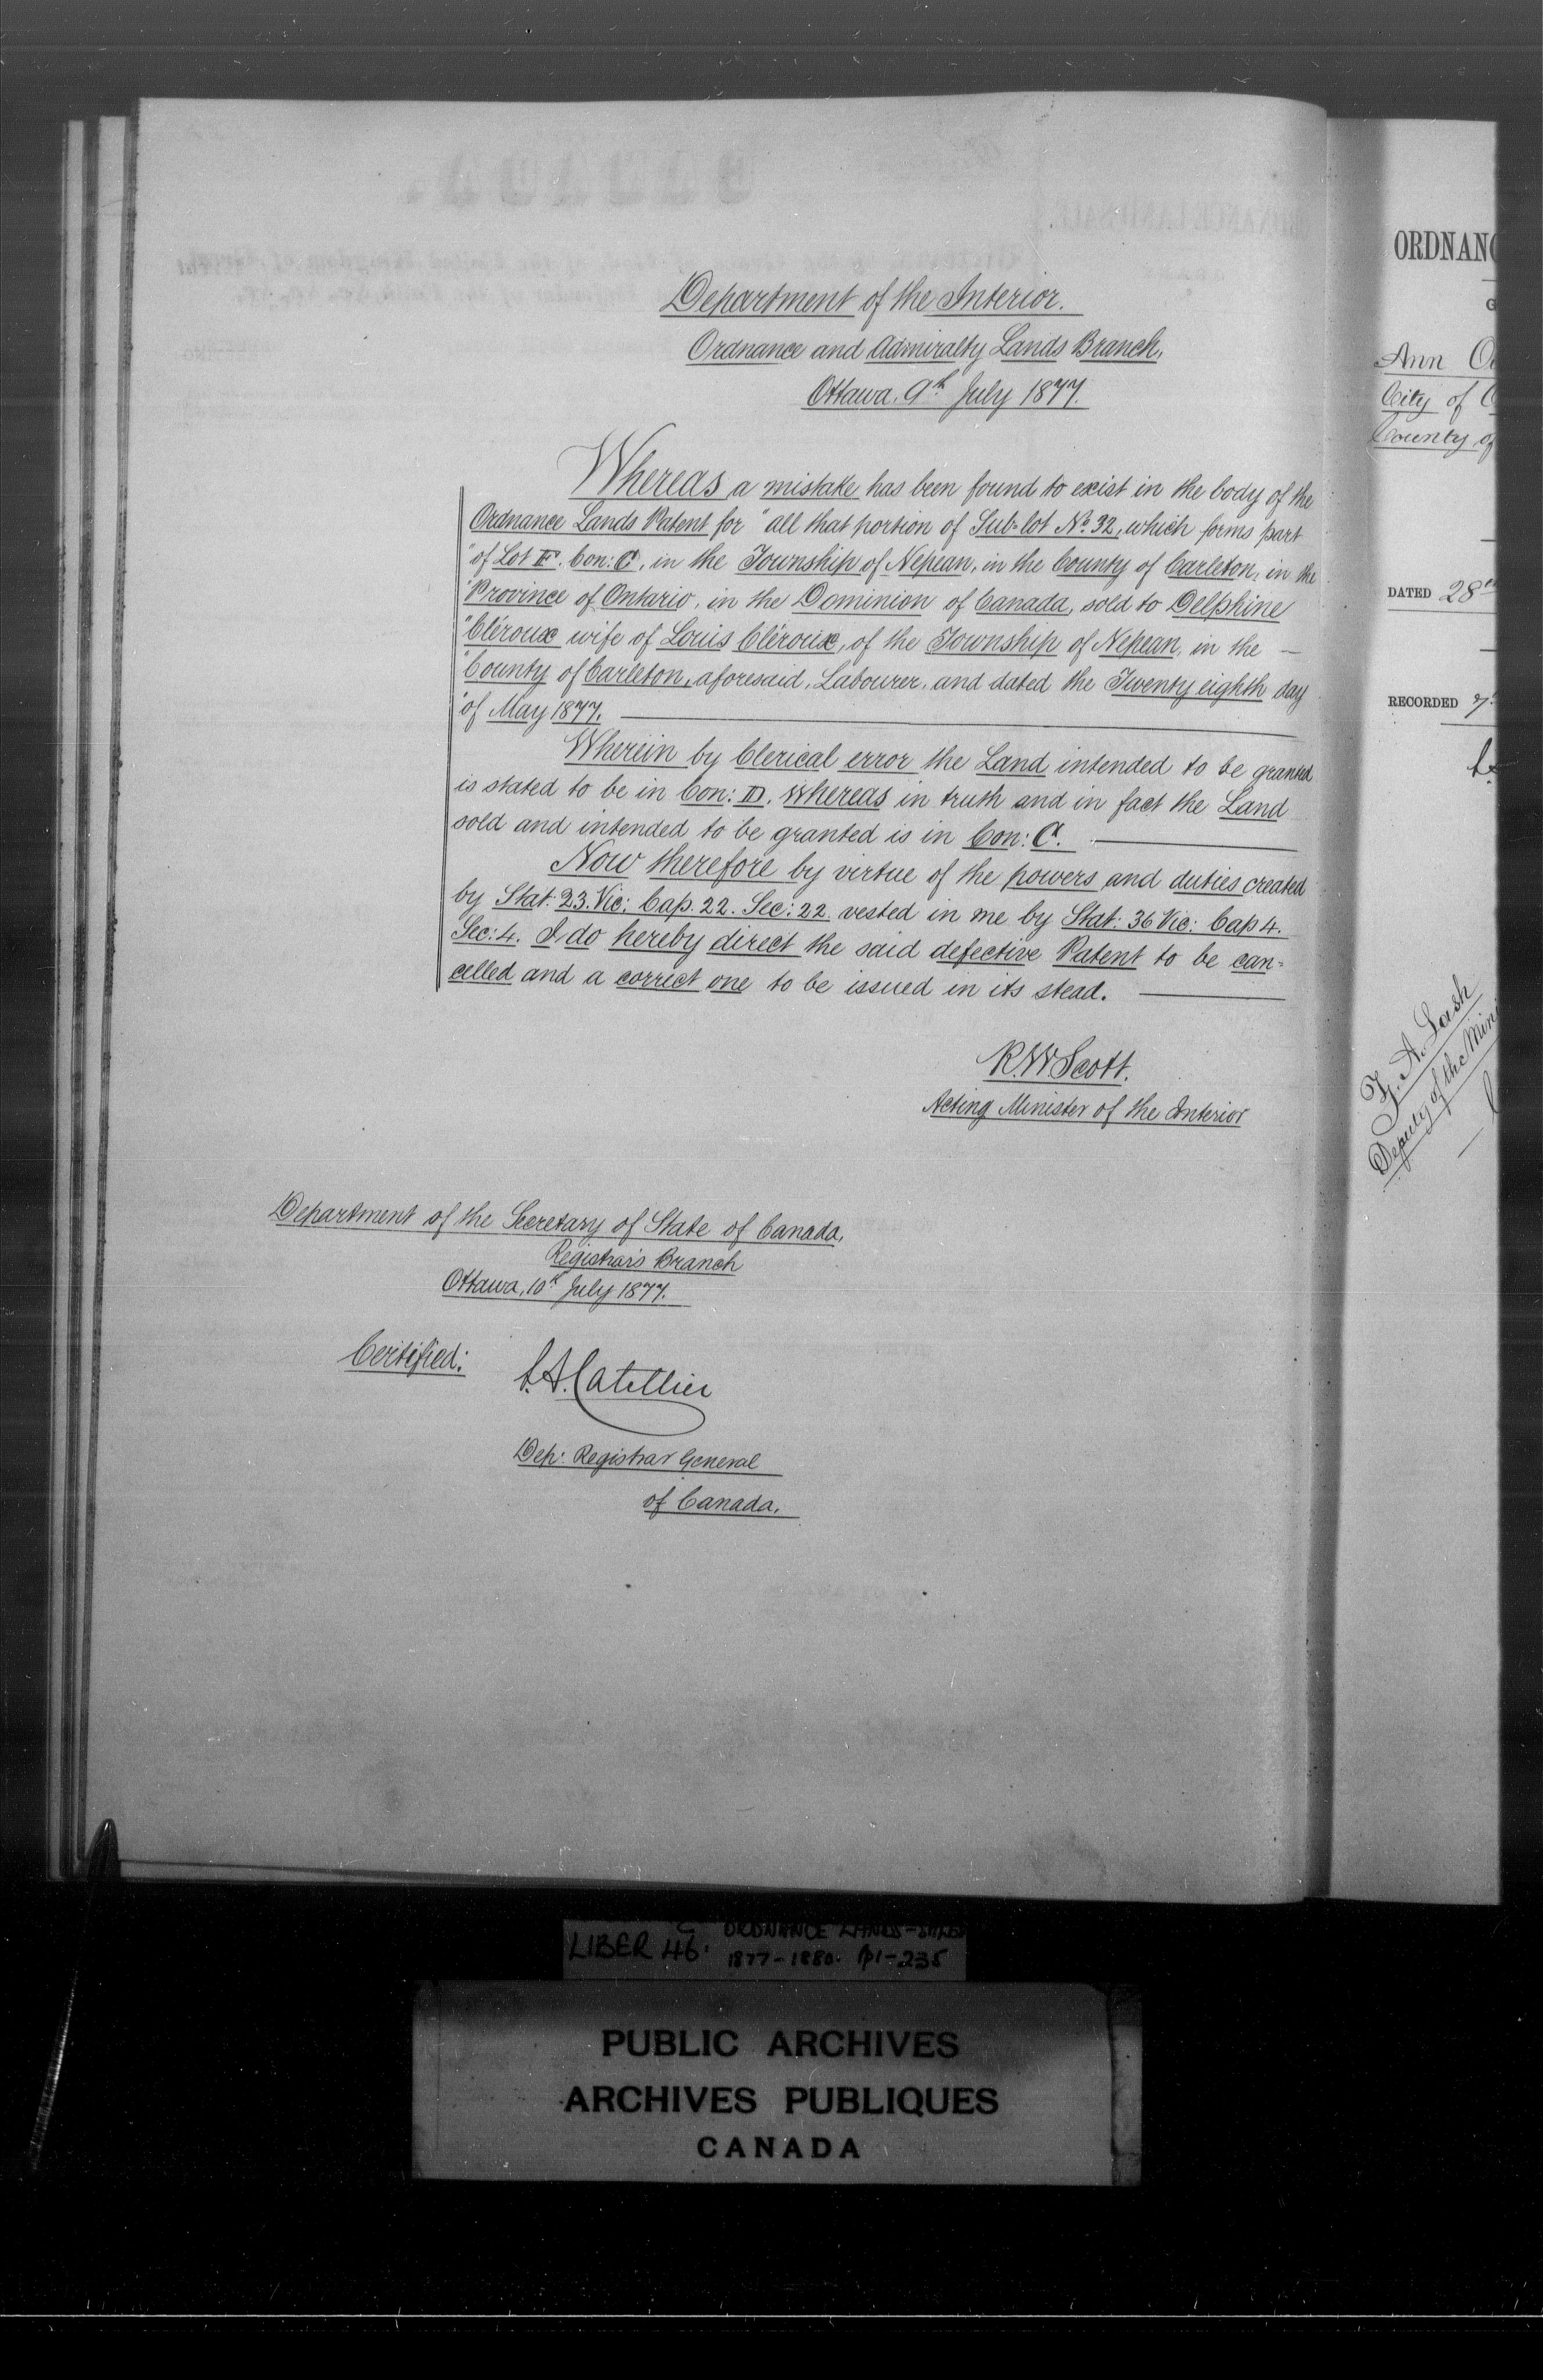 Department of the Interior.
Ordnance and Admiralty Lands Branch,
Ottawa, 9th July 1877.
Whereas a mistake has been found to exist in the body of the
Ordnance Lands Patent for "all that portion of Sub-lot No. 32, which forms part
"of Lot F. Con: C, in the Township of Nepean, in the County of Carleton, in the
"Province of Ontario, in the Dominion of Canada, sold to Delphine
"Cléroux wife of Louis Cléroux, of the Township of Nepean, in the —
"County of Carleton, aforesaid, Labourer, and dated the Twenty eighth day
"of May 1877.
Wherein by Clerical error the Land intended to be granted
is stated to be in Con: D. Whereas in truth and in fact the Land
sold and intended to be granted is in Con: C.
Now therefore by virtue of the powers and duties created
by Stat: 23. Vic: Cap. 22. Sec: 22 vested in me by Stat: 36 Vic: Cap 4.
Sec: 4. I do hereby direct the said defective Patent to be can=
celled and a correct one to be issued in its stead.
R. W. Scott.
Acting Minister of the Interior
Department of the Secretary of State of Canada,
Registrar's Branch
Ottawa, 10th July 1877.
Certified:
L. A. Catellier
Dep: Registrar General
of Canada.
ORDNANC
G
Ann
City of
County of
DATED 28th
RECORDED 7
Z. A. Lash
Deputy of the Mini
LIBER 46. C ORDNANCE LANDS-SALES
1877-1880. p1-235
PUBLIC ARCHIVES
ARCHIVES PUBLIQUES
CANADA